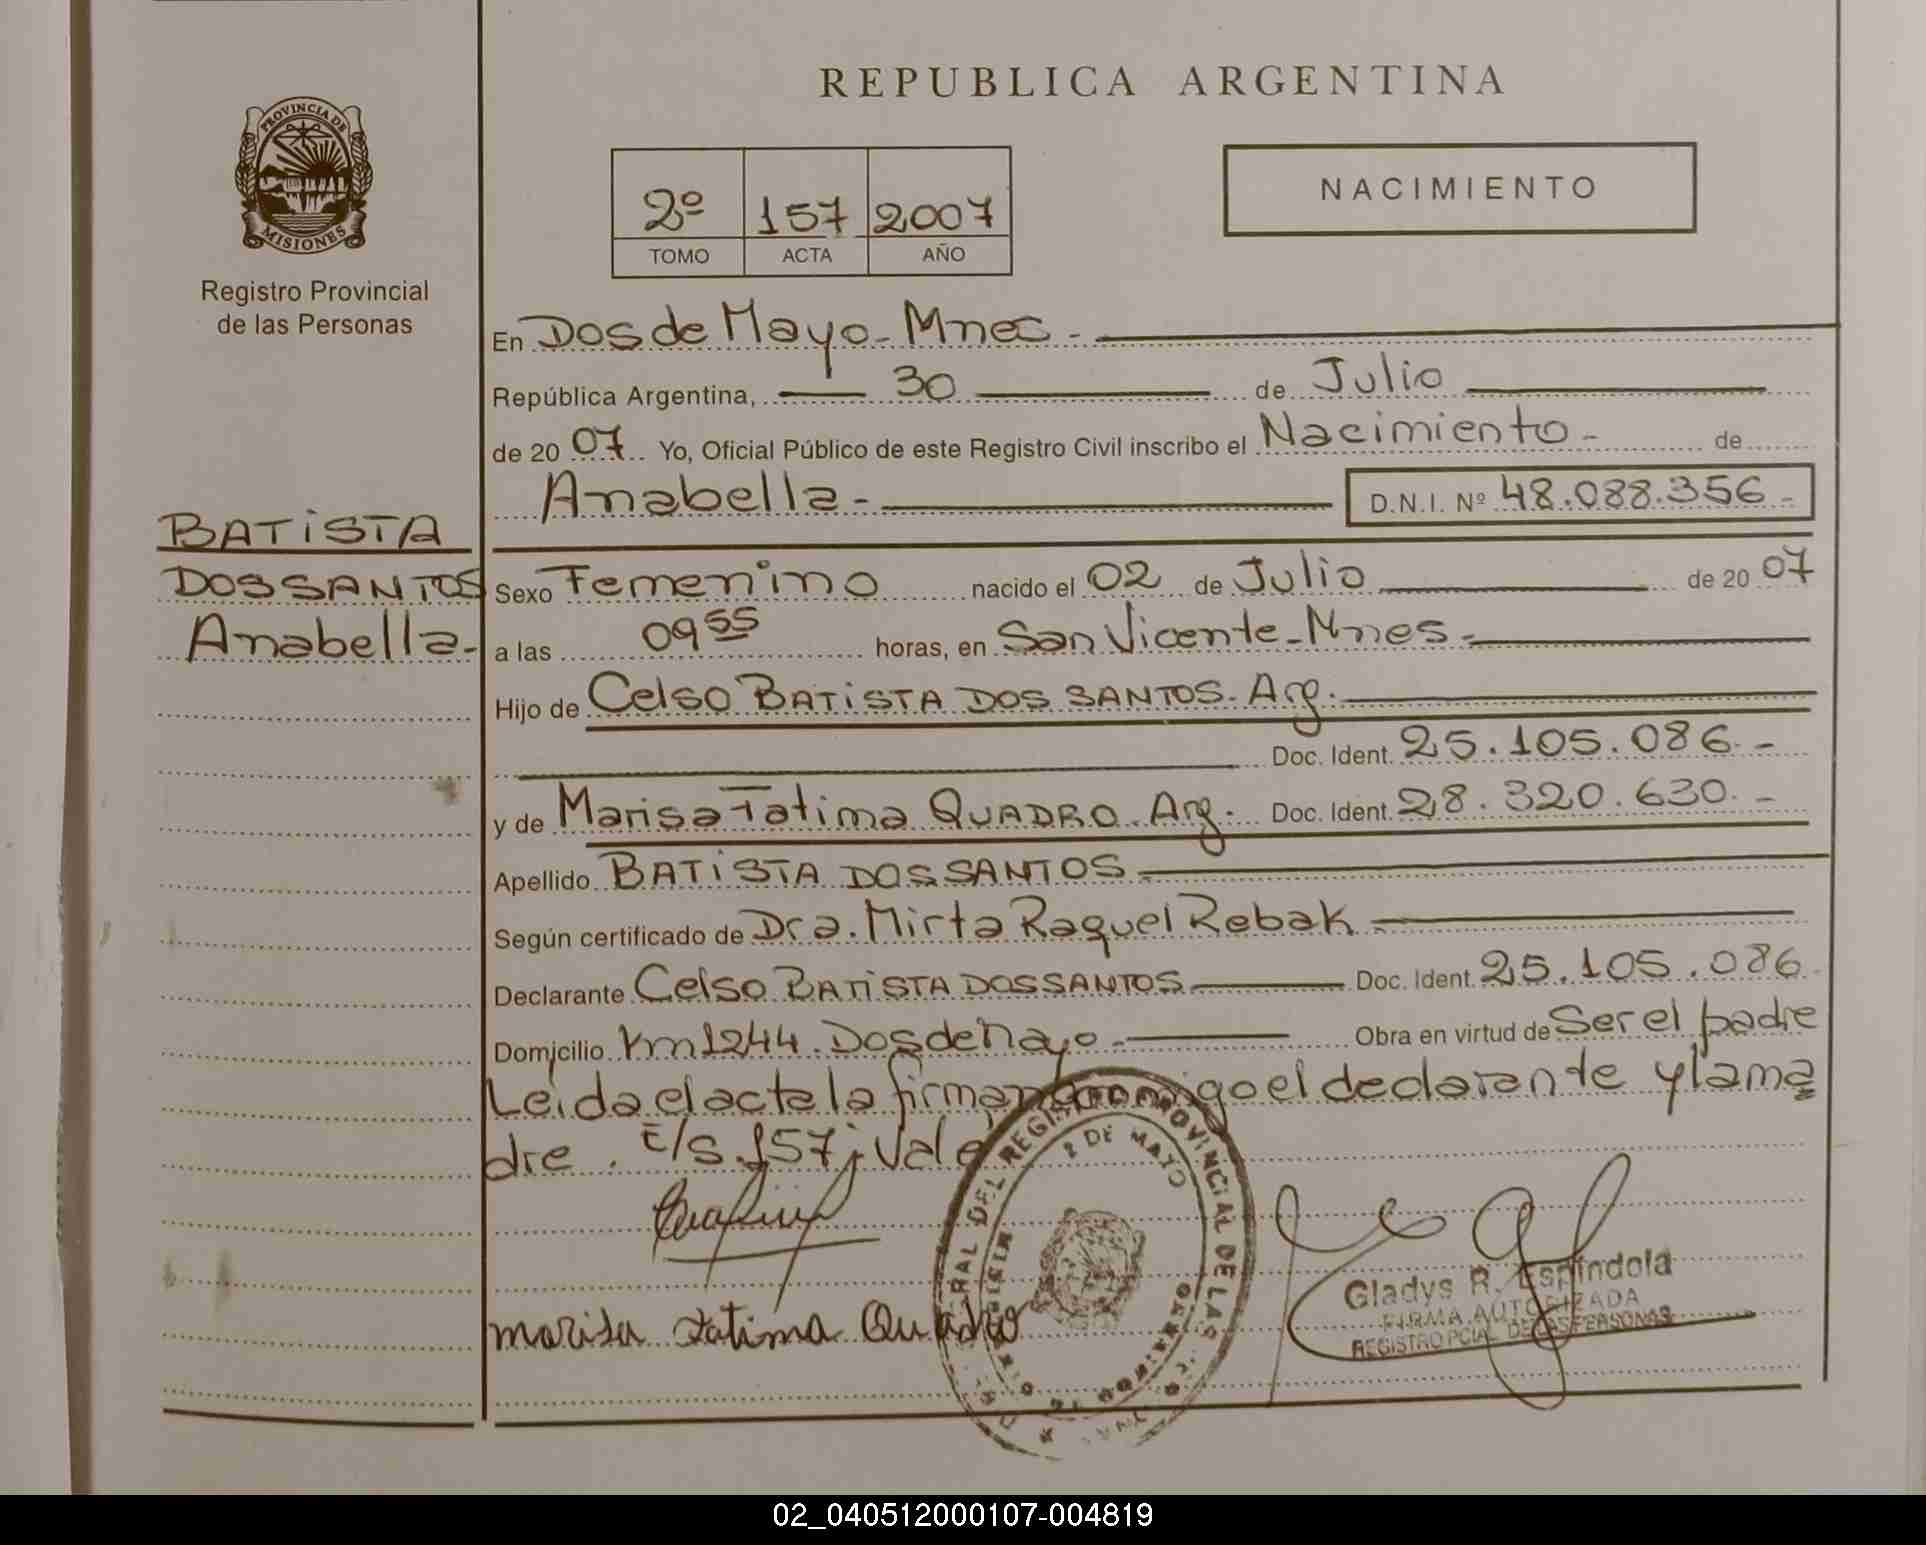 REPUBLICA ARGENTINA
PROVINCIA DE
MISIONES
Registro Provincial
de las Personas
NACIMIENTO
2º 157 2007
TOMO ACTA AÑO
En Dos de Mayo - Mnes -
República Argentina, 30 de Julio
de 20 07 Yo, Oficial Público de este Registro Civil inscribo el Nacimiento - de
Anabella - D.N.I. Nº 48.088.356 -
BATISTA
DOS SANTOS
Anabella -
Sexo Femenino nacido el 02 de Julio de 20 07
a las 09 55 horas, en San Vicente - Mnes -
Hijo de Celso BATISTA DOS SANTOS - Arg. -
Doc. Ident. 25.105.086 -
y de Marisa Fatima QUADRO. Arg. Doc. Ident. 28.320.630 -
Apellido BATISTA DOS SANTOS -
Según certificado de Dra. Mirta Raquel Rebak -
Declarante Celso BATISTA DOS SANTOS Doc. Ident. 25.105.086
Domicilio Km 1244. Dos de Mayo - Obra en virtud de Ser el padre
Leida el acta la firman conmigo el declarante y la ma
dre. E/S. 157; Vale
marisa Fatima Quadro
REGISTRO PROVINCIAL DE LAS
2 DE MAYO
Gladys R. Espindola
FIRMA AUTORIZADA
REGISTRO PCIAL DE LAS PERSONAS
02_040512000107-004819